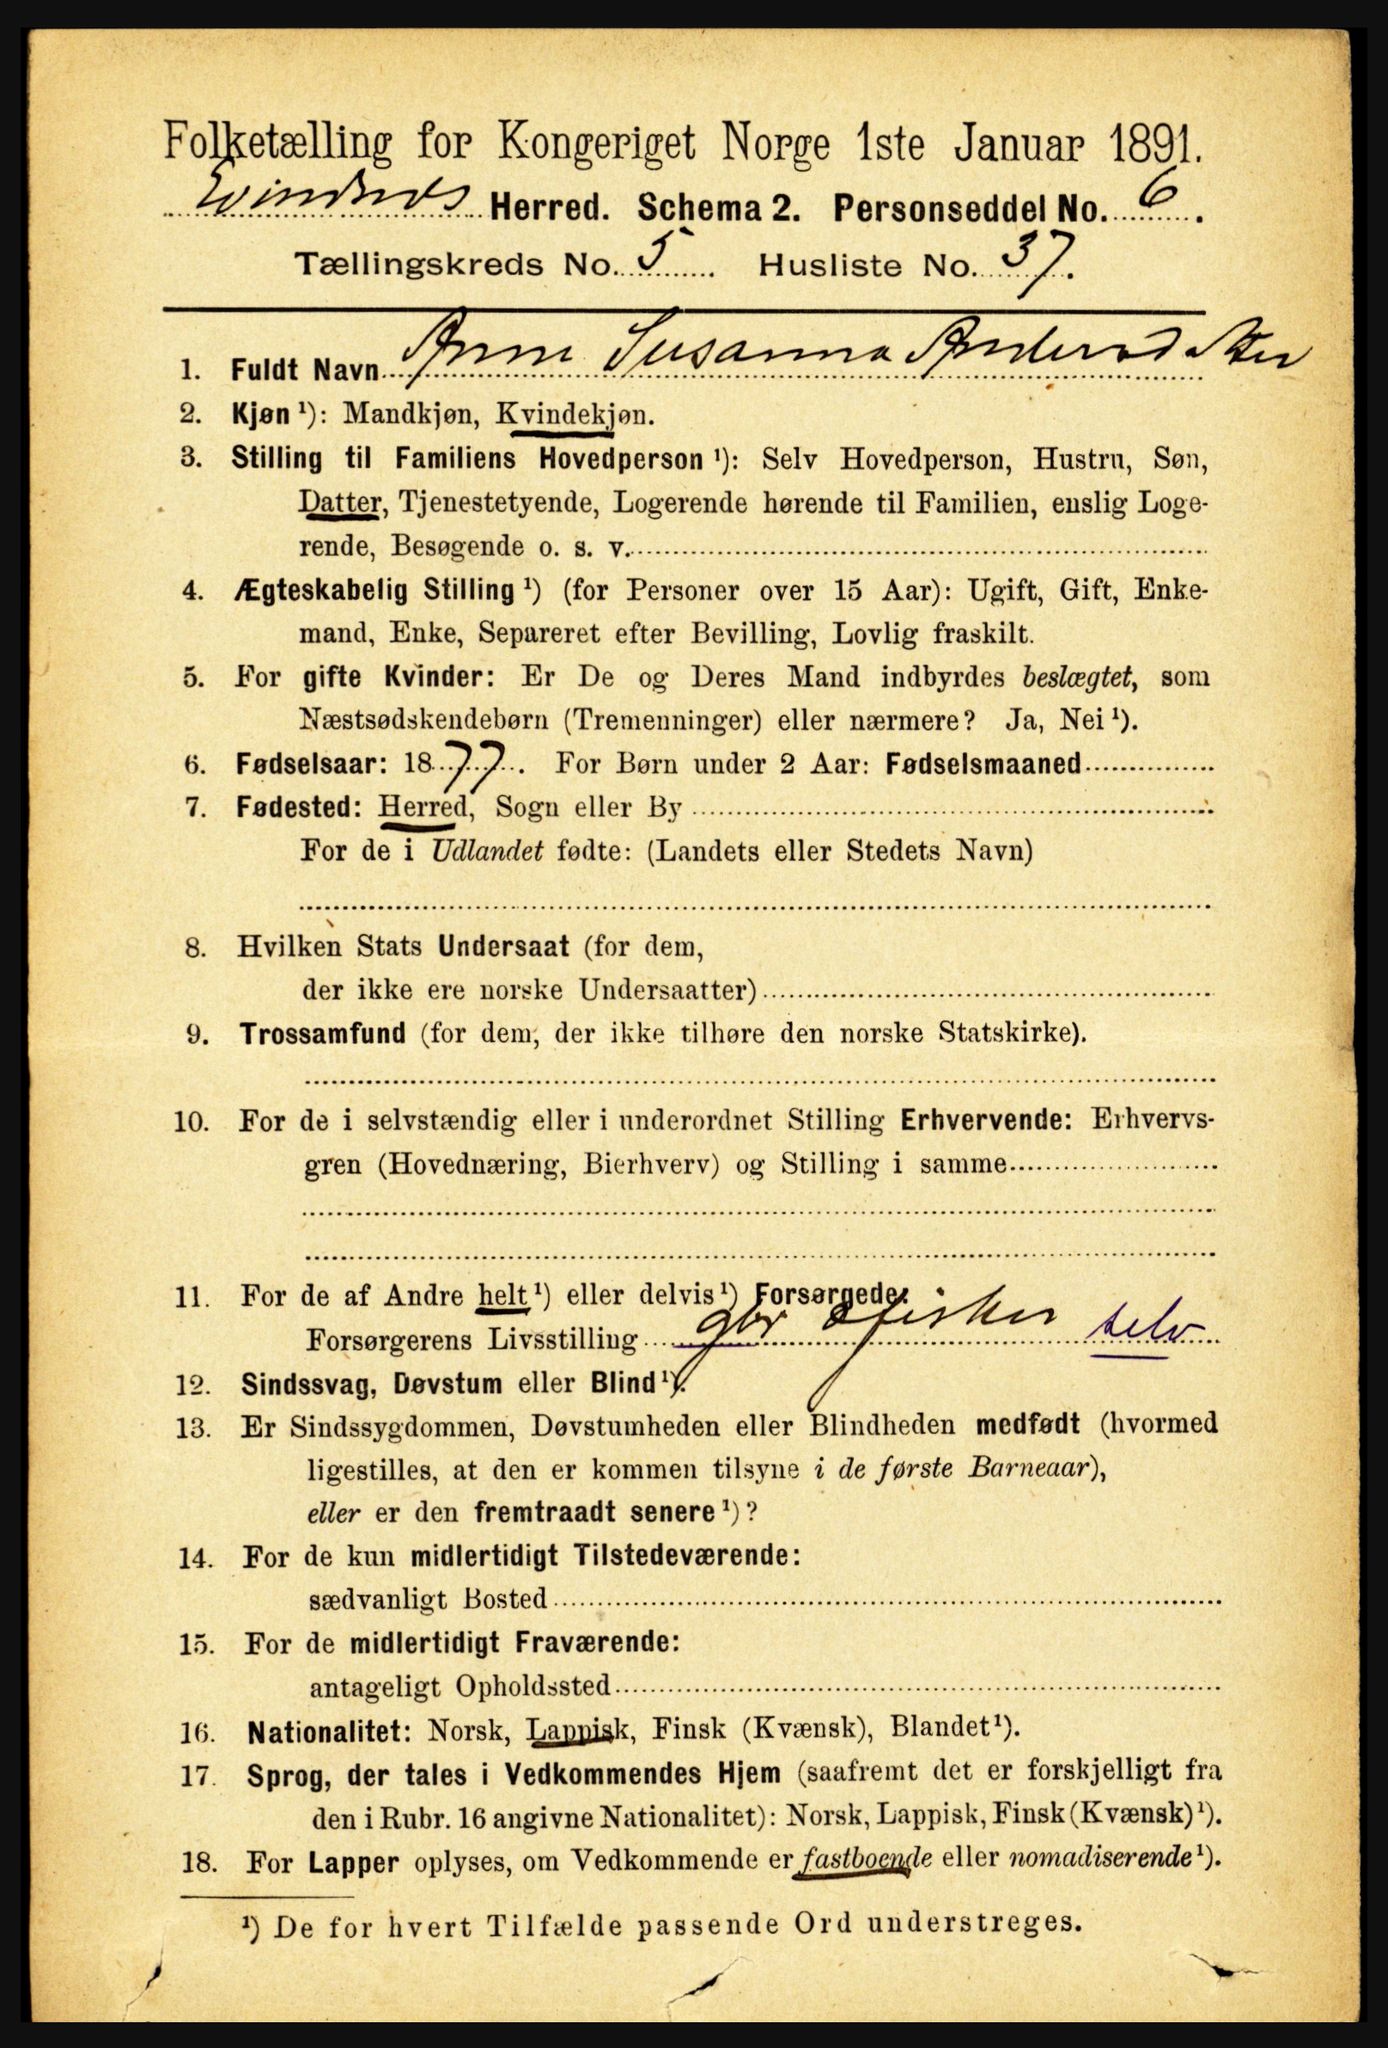 Folketælling for Kongeriget Norge 1ste Januar 1891.
Evindnæs Herred. Schema 2. Personseddel No. 6.
Tællingskreds No. 5. Husliste No. 37.
1. Fuldt Navn Anne Susanna Andersdatter
2. Kjøn ¹): Mandkjøn, Kvindekjøn.
3. Stilling til Familiens Hovedperson ¹): Selv Hovedperson, Hustru, Søn,
Datter, Tjenestetyende, Logerende hørende til Familien, enslig Loge-
rende, Besøgende o. s. v.
4. Ægteskabelig Stilling ¹) (for Personer over 15 Aar): Ugift, Gift, Enke-
mand, Enke, Separeret efter Bevilling, Lovlig fraskilt.
5. For gifte Kvinder: Er De og Deres Mand indbyrdes beslægtet, som
Næstsødskendebørn (Tremenninger) eller nærmere? Ja, Nei ¹).
6. Fødselsaar: 1877. For Børn under 2 Aar: Fødselsmaaned
7. Fødested: Herred, Sogn eller By
For de i Udlandet fødte: (Landets eller Stedets Navn)
8. Hvilken Stats Undersaat (for dem,
der ikke ere norske Undersaatter)
9. Trossamfund (for dem, der ikke tilhøre den norske Statskirke).
10. For de i selvstændig eller i underordnet Stilling Erhvervende: Erhvervs-
gren (Hovednæring, Bierhverv) og Stilling i samme
11. For de af Andre helt ¹) eller delvis ¹) Forsørgede:
Forsørgerens Livsstilling gbr fisker selv
12. Sindssvag, Døvstum eller Blind ¹).
13. Er Sindssygdommen, Døvstumheden eller Blindheden medfødt (hvormed
ligestilles, at den er kommen tilsyne i de første Barneaar),
eller er den fremtraadt senere ¹)?
14. For de kun midlertidigt Tilstedeværende:
sædvanligt Bosted
15. For de midlertidigt Fraværende:
antageligt Opholdssted
16. Nationalitet: Norsk, Lappisk, Finsk (Kvænsk), Blandet ¹).
17. Sprog, der tales i Vedkommendes Hjem (saafremt det er forskjelligt fra
den i Rubr. 16 angivne Nationalitet): Norsk, Lappisk, Finsk (Kvænsk) ¹).
18. For Lapper oplyses, om Vedkommende er fastboende eller nomadiserende ¹).
¹) De for hvert Tilfælde passende Ord understreges.